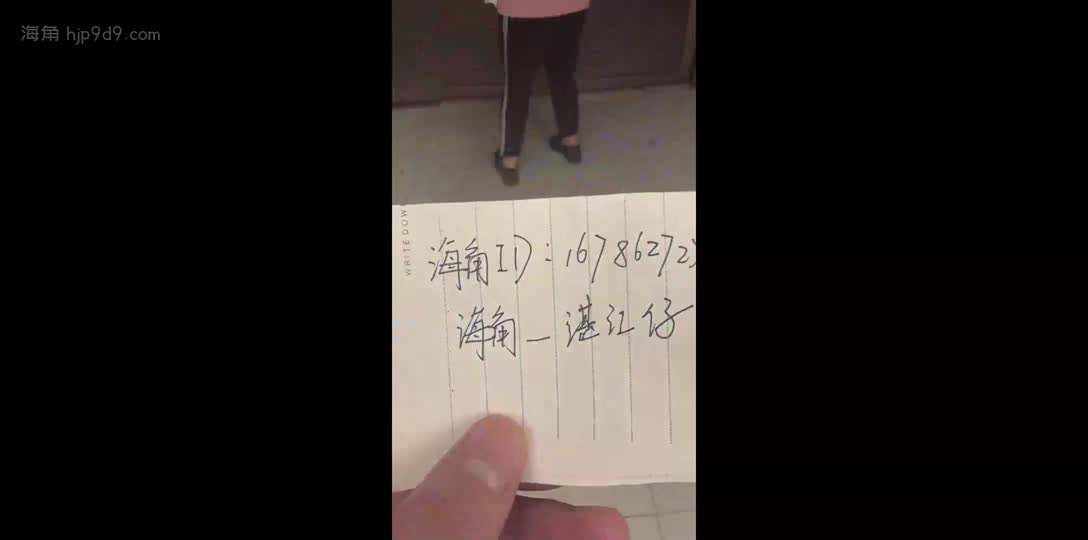 海角 hjp9d9.com
WRITE DOW
海角ID:16786272
海角_湛江仔